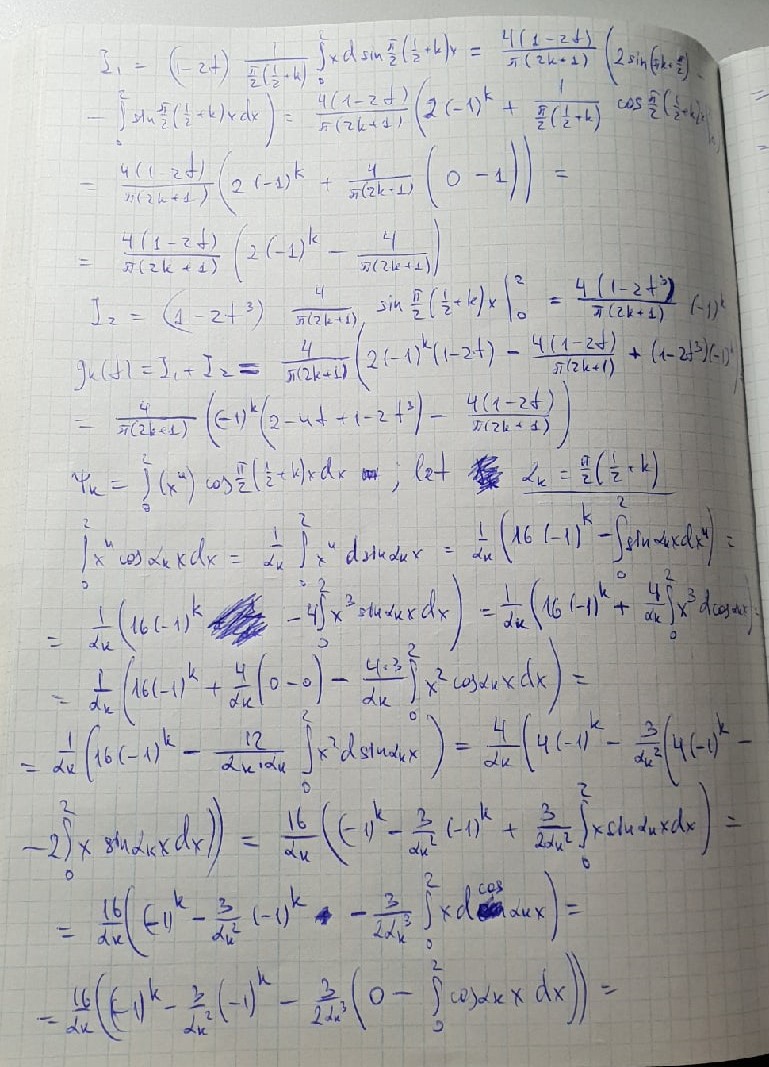 I₁ = (1-2t) 1/(π/2(1/2+k)) ∫₀² x d sin π/2(1/2+k)x = 4(1-2t)/(π(2k+1)) (2 sin(πk+π/2) -
- ∫₀² sin π/2(1/2+k)x dx) = 4(1-2t)/(π(2k+1)) (2(-1)^k + 1/(π/2(1/2+k)) cos π/2(1/2+k)x
= 4(1-2t)/(π(2k+1)) (2(-1)^k + 4/(π(2k+1)) (0-1)) =
= 4(1-2t)/(π(2k+1)) (2(-1)^k - 4/(π(2k+1)))
I₂ = (1-2t³) 4/(π(2k+1)) sin π/2(1/2+k)x |₀² = 4(1-2t³)/(π(2k+1)) (-1)^k
g_k(t) = I₁+I₂ = 4/(π(2k+1)) (2(-1)^k(1-2t) - 4(1-2t)/(π(2k+1)) + (1-2t³)(-1)^k)
= 4/(π(2k+1)) ((-1)^k(2-4t+1-2t³) - 4(1-2t)/(π(2k+1)))
Ψ_k = ∫₀² (x⁴) cos π/2(1/2+k)x dx ; let α_k = π/2(1/2+k)
∫₀² x⁴ cos α_k x dx = 1/α_k ∫₀² x⁴ d sin α_k x = 1/α_k (16(-1)^k - ∫₀² sin α_k x dx⁴) =
= 1/α_k (16(-1)^k - 4∫₀² x³ sin α_k x dx) = 1/α_k (16(-1)^k + 4/α_k ∫₀² x³ d cos α_k x) =
= 1/α_k (16(-1)^k + 4/α_k (0-0) - 4·3/α_k ∫₀² x² cos α_k x dx) =
= 1/α_k (16(-1)^k - 12/(α_k·α_k) ∫₀² x² d sin α_k x) = 4/α_k (4(-1)^k - 3/α_k² (4(-1)^k -
- 2∫₀² x sin α_k x dx)) = 16/α_k ((-1)^k - 3/α_k² (-1)^k + 3/(2α_k²) ∫₀² x sin α_k x dx) =
= 16/α_k ((-1)^k - 3/α_k² (-1)^k - 3/(2α_k³) ∫₀² x d cos α_k x) =
= 16/α_k ((-1)^k - 3/α_k² (-1)^k - 3/(2α_k³) (0 - ∫₀² cos α_k x dx)) =